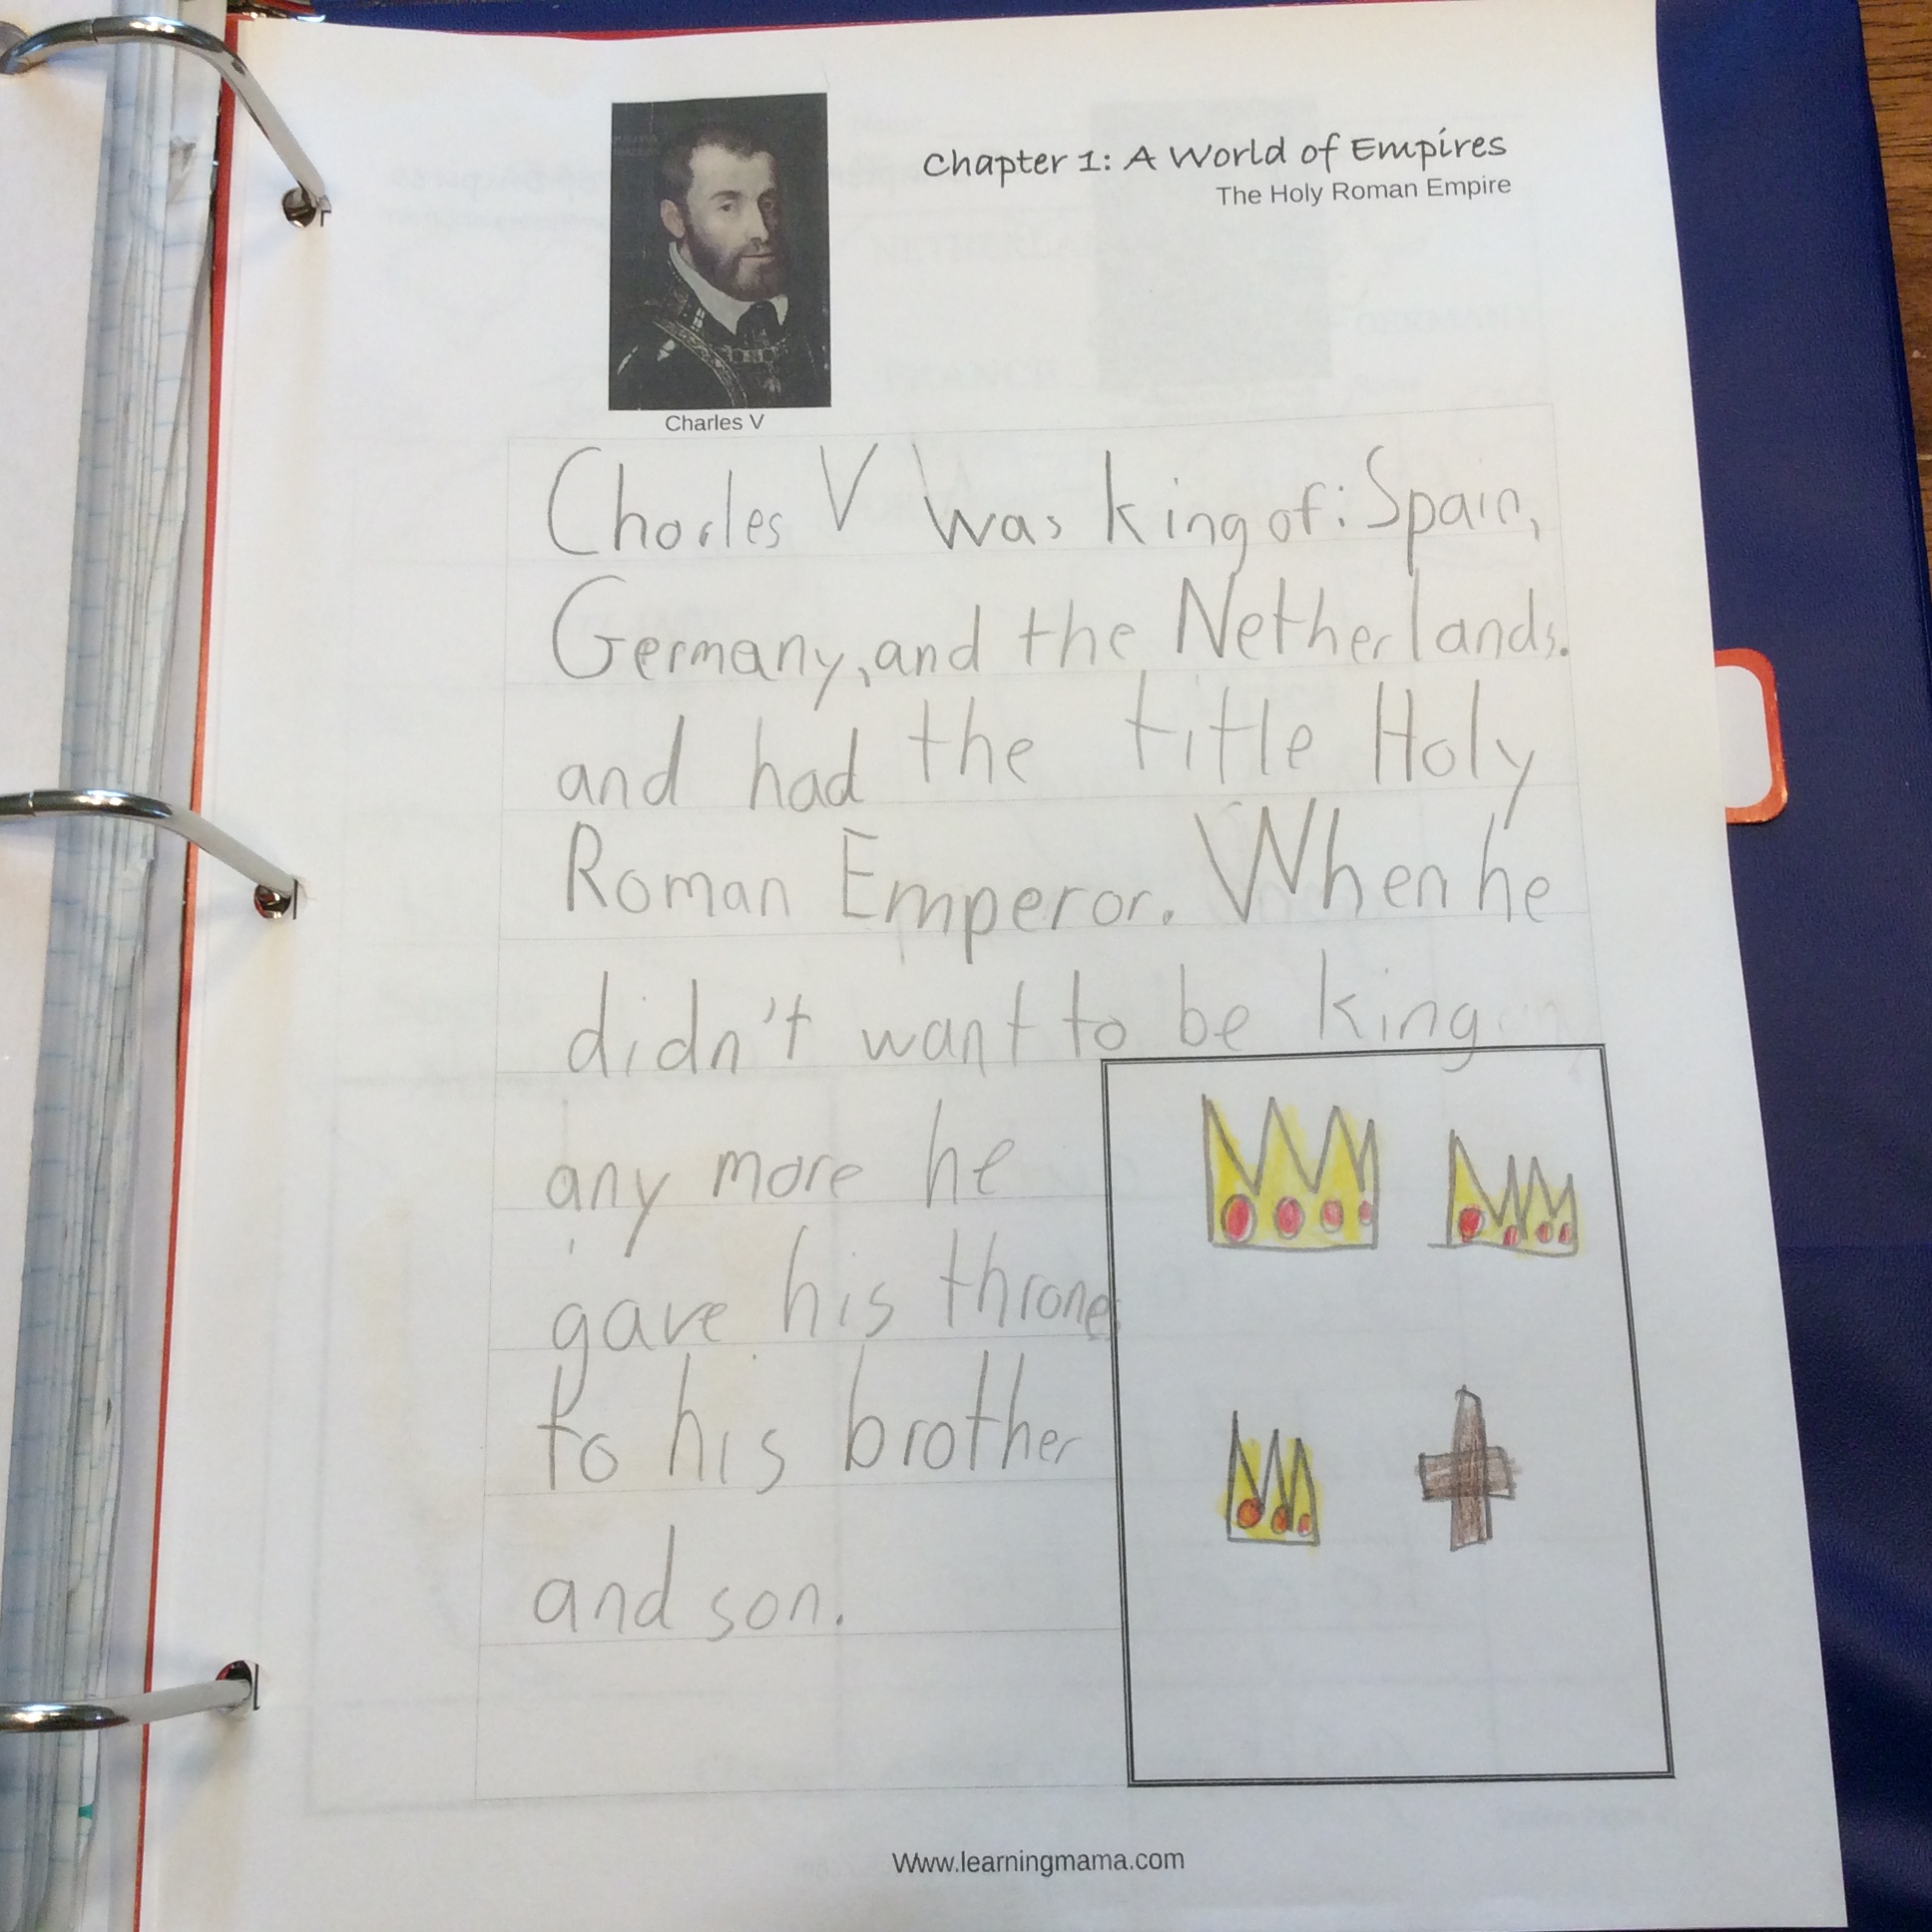 Chapter 1: A World of Empires
The Holy Roman Empire
Charles V
Charles V Was king of: Spain,
Germany, and the Netherlands.
and had the title Holy
Roman Emperor. When he
didn't want to be king
any more he
gave his throne
to his brother
and son.
Www.learningmama.com